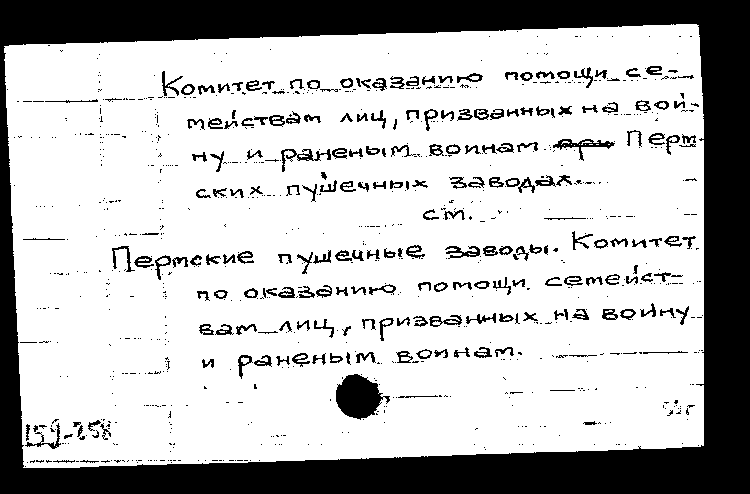 Комитет по оказанию помощи се-
мействам лиц, призванных на вой-
ну и раненым воинам при Перм-
ских пушечных заводах.
см.
Пермские пушечные заводы. Комитет
по оказанию помощи семейст-
вам лиц, призванных на войну
и раненым воинам.
159-258